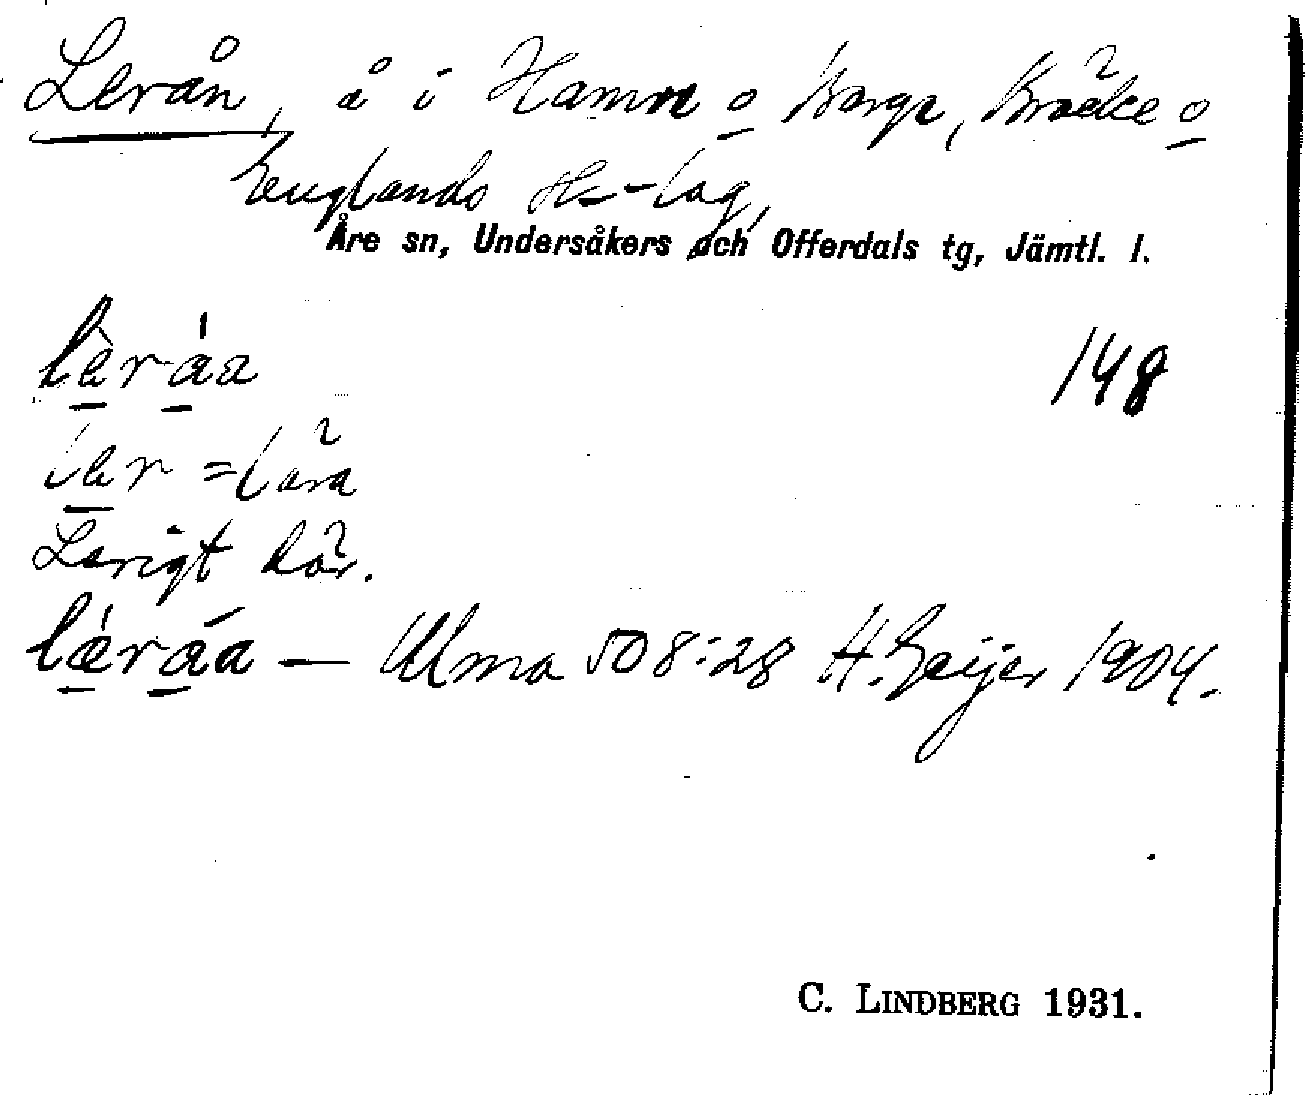 Lerån, å i Hamre o Berge, Bräcke o
Englands H-lag,
Åre sn, Undersåkers och Offerdals tg, Jämtl. l.
lèráa 148
ler = lera
Lerigt där.
lǽráa — Ulma 508:28 H. Geijer 1904.
C. LINDBERG 1931.